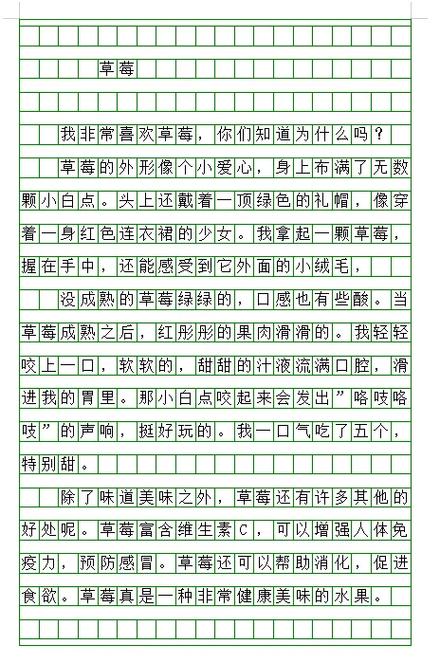 草莓
我非常喜欢草莓，你们知道为什么吗？
草莓的外形像个小爱心，身上布满了无数
颗小白点。头上还戴着一顶绿色的礼帽，像穿
着一身红色连衣裙的少女。我拿起一颗草莓，
握在手中，还能感受到它外面的小绒毛，
没成熟的草莓绿绿的，口感也有些酸。当
草莓成熟之后，红彤彤的果肉滑滑的。我轻轻
咬上一口，软软的，甜甜的汁液流满口腔，滑
进我的胃里。那小白点咬起来会发出”咯吱咯
吱”的声响，挺好玩的。我一口气吃了五个，
特别甜。
除了味道美味之外，草莓还有许多其他的
好处呢。草莓富含维生素C，可以增强人体免
疫力，预防感冒。草莓还可以帮助消化，促进
食欲。草莓真是一种非常健康美味的水果。